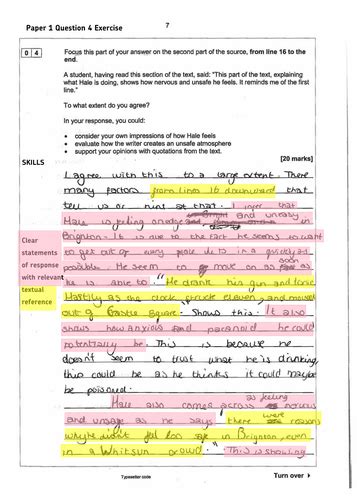 Paper 1 Question 4 Exercise
7
0 4
Focus this part of your answer on the second part of the source, from line 16 to the
end.
A student, having read this section of the text, said: "This part of the text, explaining
what Hale is doing, shows how nervous and unsafe he feels. It reminds me of the first
line."
To what extent do you agree?
In your response, you could:
• consider your own impressions of how Hale feels
• evaluate how the writer creates an unsafe atmosphere
• support your opinions with quotations from the text.
[20 marks]
SKILLS
Clear
statements
of response
with relevant
textual
reference
I agree with this to a large extent. There
many factors from lines 16 downward that
tell us or hint at that. I infer that
Hale is feling on edge and uneasy in
Brighton. It is due to the fact he seems to want
to get out of every place he is in a quickly as
possible. He seem to move on as soon as
he is able to. "He drank his gin and
Hastily as the clock struck eleven, and moved
out of Castle Square". Shows this. It also
shows how anxious and paranoid he could
potentially be. This is because he
doesn't seem to trust what he is drinking,
this could be as he thinks it could maybe
be poisoned.
Hale also comes across as feeling nervous
and unsafe as he says "there were reasons
why he didn't feel too safe in Brighton, even
in a Whitsun crowd". This is showing
Typesetter code
Turn over ►